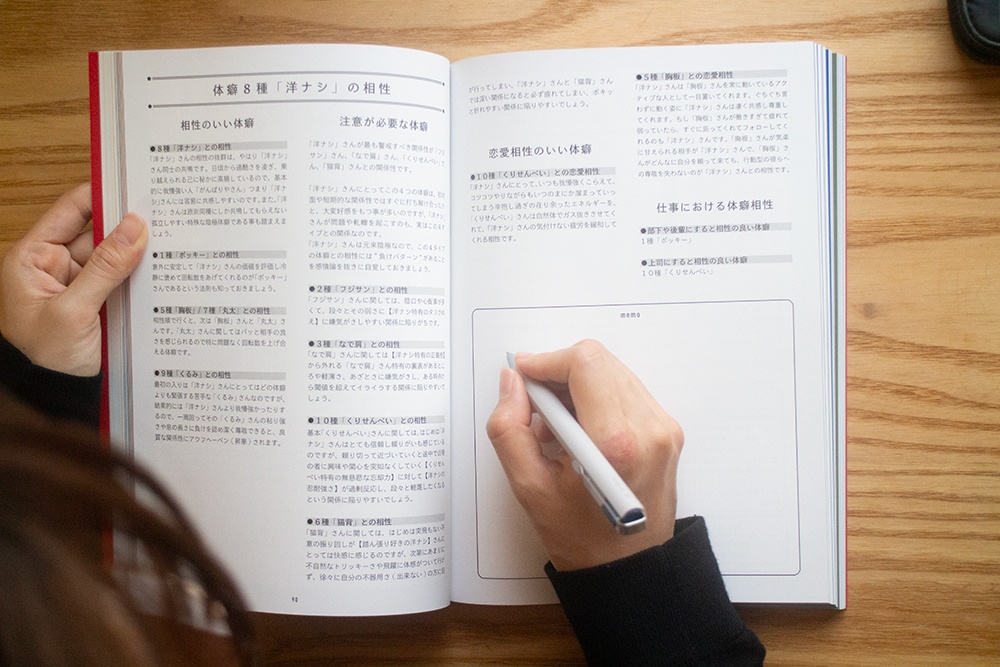 体癖8種「洋ナシ」の相性
相性のいい体癖
●8種「洋ナシ」との相性
「洋ナシ」さんの相性の抜群は、やはり「洋ナシ」
さん同士の共鳴です。日頃から過酷さを凌ぎ、乗
り越えられる己に秘かに高揚しているので、基本
的に我慢強い人「がんばりやさん」つまり「洋ナ
シ」さんには容易に共感しやすいのです。また、「洋
ナシ」さんは原則同種にしか共鳴してもらえない
孤立しやすい特殊な陰極体癖である事も踏まえま
しょう。
●1種「ポッキー」との相性
意外に安定して「洋ナシ」さんの価値を評価し冷
静に褒めて回転数をあげてくれるのが「ポッキー」
さんであるという法則も知っておきましょう。
●5種「胸板」/7種「丸太」との相性
相性順で行くと、次は「胸板」さんと「丸太」さ
んです。「丸太」さんに関してはパッと相手の良
さを感じられるので特に問題なく回転数を上げ合
える体癖です。
●9種「くるみ」との相性
最初の入りは「洋ナシ」さんにとってはどの体癖
よりも緊張する苦手な「くるみ」さんなのですが、
結果的には「洋ナシ」さんより我慢強かったりす
るので、一周回ってその「くるみ」さんの粘り強
さや息の長さに負けを認め潔く尊敬できると、良
質な関係性にアウフヘーベン（昇華）されます。
注意が必要な体癖
「洋ナシ」さんが最も警戒すべき関係性が「フジ
サン」さん、「なで肩」さん、「くりせんべい」さ
ん、「猫背」さんとの関係性です。
「洋ナシ」さんにとってこの4つの体癖は、初対
面や短期的な関係性ではすぐに打ち解け合ったり
と、大変好感をもつ事が多いのですが、「洋ナシ」
さんが問題や軋轢を起こすのも、実はこの4タ
イプとの関係なのです。
「洋ナシ」さんは元来陰極なので、この4タイプ
の体癖との相性には“負けパターン”があること
を感情論を抜きに自覚しておきましょう。
●2種「フジサン」との相性
「フジサン」さんに関しては、陰口や心配事が多
くて、段々とその弱さに【洋ナシ特有のタフさゆ
え】に嫌気がさしやすい関係に陥りがちです。
●3種「なで肩」との相性
「なで肩」さんに関しては【洋ナシ特有の正義性】
から外れる「なで肩」さん特有の裏表があるとこ
ろや軽薄さ、あざとさに嫌気がさし、ある時点か
ら閾値を超えてイライラする関係に陥りやすいで
しょう。
●10種「くりせんべい」との相性
基本「くりせんべい」さんに関しては、はじめは「洋
ナシ」さんはとても信頼し頼りがいも感じている
のですが、頼り切って近づいていくと途中で出
の者に興味や関心を突如なくしていく【くりせん
べい特有の無慈悲な忘却力】に対して【洋ナシの
忍耐強さ】が過剰反応し、段々と軽蔑したくなる
という関係に陥りやすいでしょう。
●6種「猫背」との相性
「猫背」さんに関しては、はじめは突飛もない不
意の振り回しが【踏ん張り好きの洋ナシ】さんに
とっては快感に感じるのですが、次第にあまりに
不自然なトリッキーさや飛躍に体感がついて行け
ず、徐々に自分の不器用さ（出来ない）の方に目
90
が行ってしまい、「洋ナシ」さんと「猫背」さん
では深い関係になると必ず疲れてしまい、ポキッ
と折れやすい関係に陥りやすいでしょう。
恋愛相性のいい体癖
●10種「くりせんべい」との恋愛相性
「洋ナシ」さんにとって、いつも我慢強くこらえて、
コツコツやりながらもいつのまにか溜まっていっ
てしまう辛抱し過ぎの在り余ったエネルギーを、
「くりせんべい」さんは自然体でガス抜きさせてく
れて、「洋ナシ」さんの気付けない疲労を緩和して
くれる相性です。
●5種「胸板」との恋愛相性
「洋ナシ」さんは「胸板」さんを常に動いているアク
ティブな人として一目置いてくれます。ぐちぐち言
わずに動く姿に「洋ナシ」さんは凄く共感し尊重し
てくれます。もし「胸板」さんが働きすぎて疲れて
弱っていたら、すぐに診ってくれてフォローしてく
れるのも「洋ナシ」さんです。「胸板」さんが気楽
に甘えられる相手が「洋ナシ」さんで、「胸板」さ
んがどんなに自分を頼って来ても、行動型の彼らへ
の尊敬を失わないのが「洋ナシ」さんとの相性です。
仕事における体癖相性
●部下や後輩にすると相性の良い体癖
1種「ポッキー」
●上司にすると相性の良い体癖
10種「くりせんべい」
memo